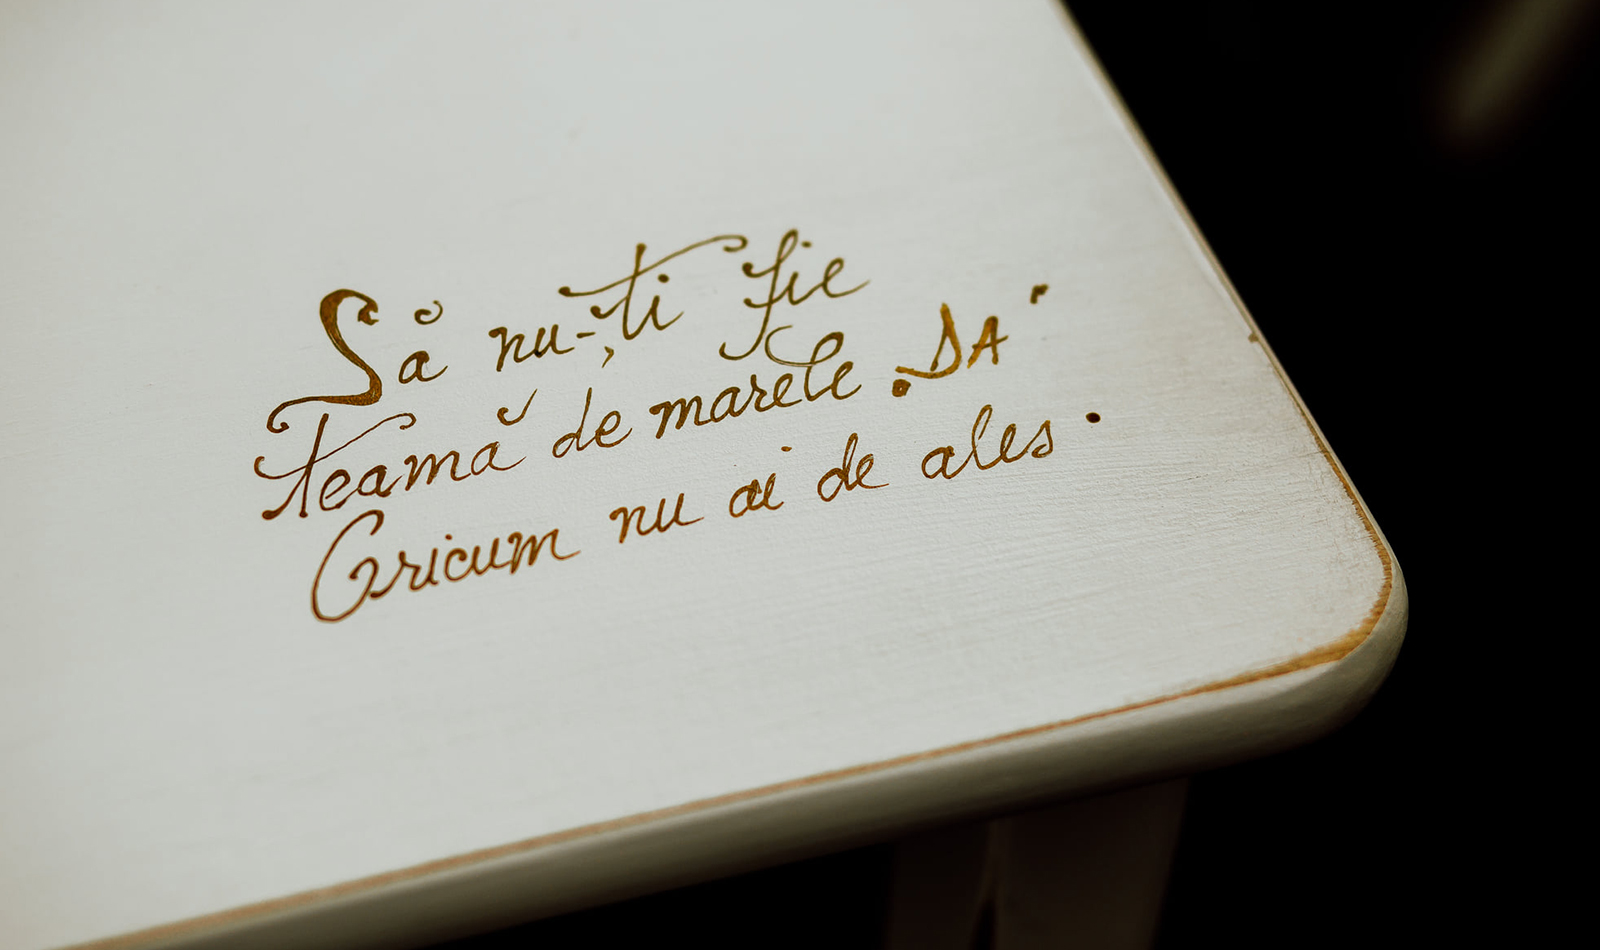 Să nu-ți fie
teamă de marele „DA"
Oricum nu ai de ales.